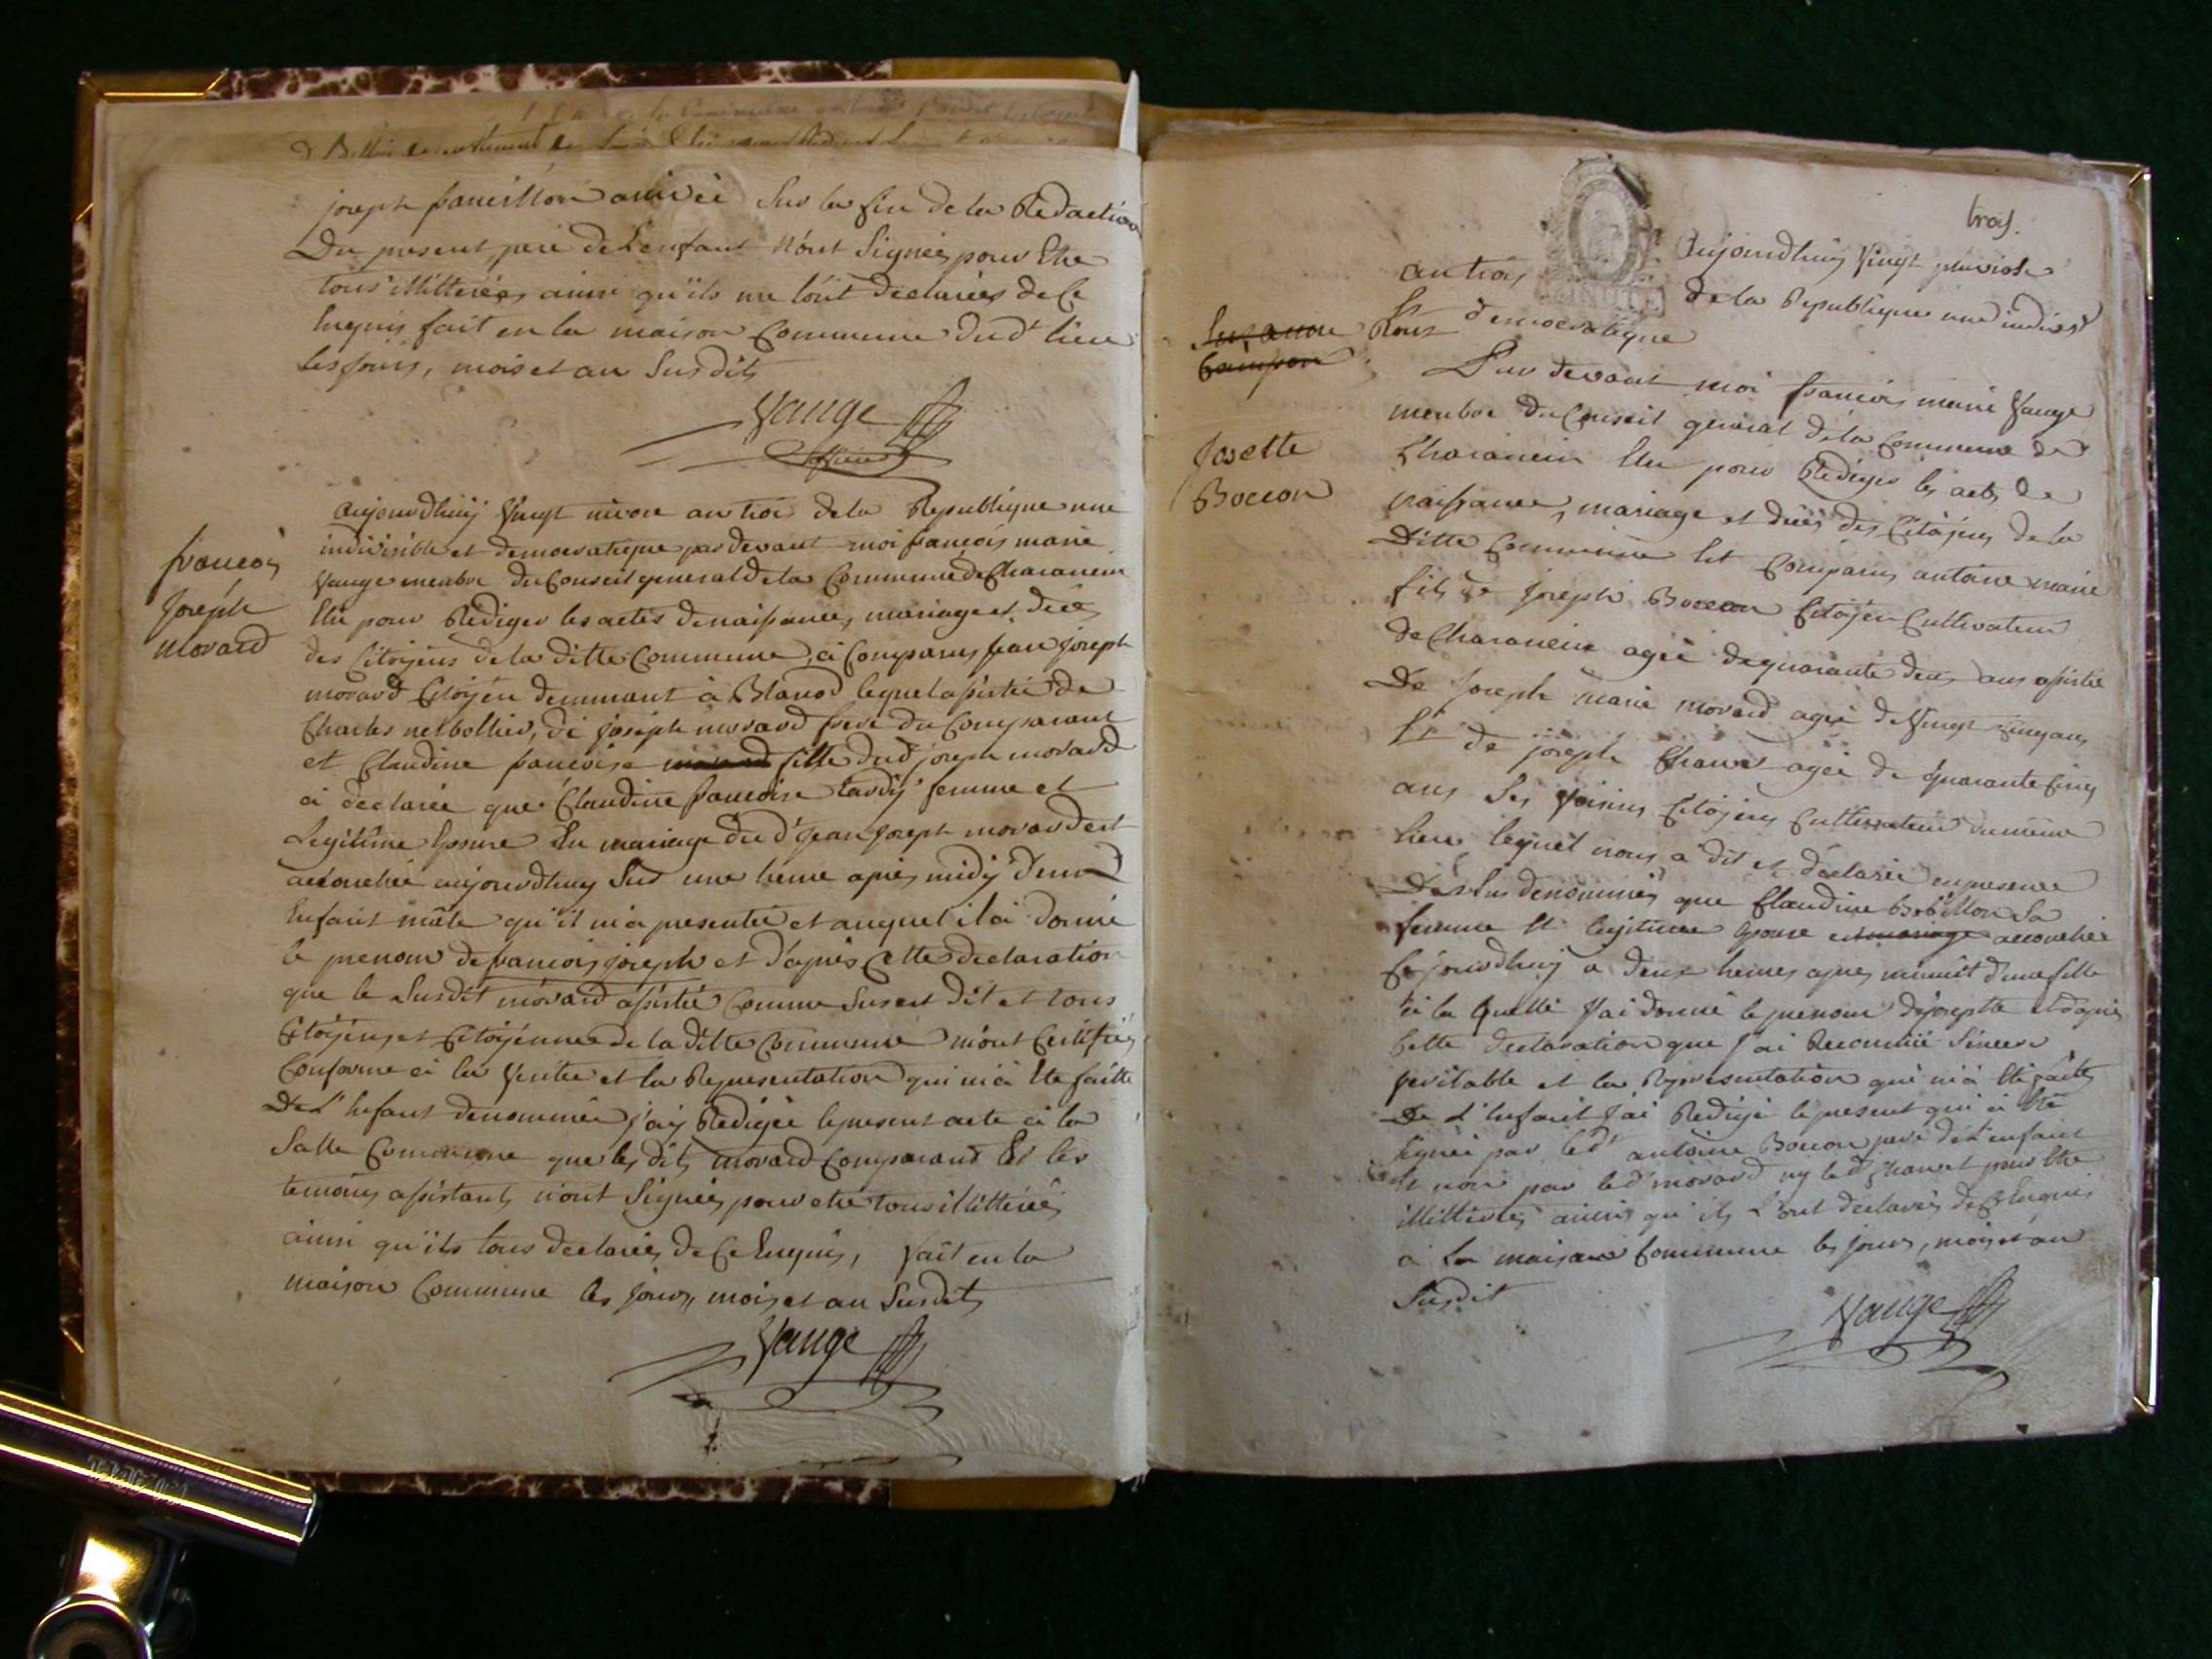 joseph françillon arrivée Sur la fin de la Redaction
Du present pere de L'enfant n'ont Signés pour Etre
tous illitterés ainsi qu'ils me l'ont declarés de Ce
Enquis fait en la maison Commune dud' lieu
les jours, mois et an Susdits
Vauge
officier
aujourdhuij Vingt nivose an trois de la Republique une
indivisible et democratique par devant moi françois marie
Vauge membre du Conseil general de la Commune de Charancin
Elu pour Rediger les actes de naissance, mariage et decés
des Citoyens de la ditte Commune, à Comparus jean joseph
morard Citoyen demmant à Blanod lequel assistée de
Charles netbollier, de joseph morard frere du Comparant
et Claudine françoise fille dud joseph morard
a declarée que Claudine françoise tardÿ femme et
Legitime Epouse En mariage dud' jean joseph morard est
accouchée aujourdhuij Sur une heure après midÿ d'un
Enfant mâle qu'il m'a presentée et auquel il a donné
le prenom de françois joseph et d'après Cette declaration
que le Susdit morard assistée Comme Sus est Dit et tous
Citoÿens et Citoÿennes de la ditte Commune m'ont Certifiés
Conforme à la Veritée et la Representation qui m'a Ete faitte
De L'Enfant denommée j'aÿ Redigée le present acte à la
Salle Commune que les dits morard Comparans Et les
temoins assistants n'ont Signés pour etre tous illitterés
ainsi qu'ils tous declarés de Ce Enquis, fait en la
maison Commune les jours, mois et an Susdits
Vauge
françois
Joseph
morard
trois.
Aujourdhuij Vingt pluviose
an trois de la Republique une indivis
democratique
Suzanne
Par devant moi françois marie Vauge
membre du Conseil general de la Commune de
Charancin Elu pour Rediger les actes de
naissance, mariage et decés des Citoÿens de la
Ditte Commune Est Comparus antoine marie
fils de joseph Boccon Citoÿen Cultivateur
de Charancin agée de quarante deux ans assistée
De joseph marie morard agée de Vingt cinq ans
Et de joseph Chauvet agée de quarante cinq
ans Ses Voisins Citoÿens Cultivateur du même
lieu lequel nous a dit et declarée en presence
Des Sus denommés que Claudine Sa
femme Et legitime Epouse accouchée
Ce jourdhuij a deux heures apres minuit d'une fille
à la quelle j'ai donné le prenom de josepte et d'apres
Cette declaration que j'ai Reconnue Sincere
Veritable et la Representation qui m'a Eté faitte
De L'Enfant j'ai Redigé le present qui a Eté
Signée par led' antoine Boccon pere de L'enfant
Et non par led' morard nÿ led' Chauvet pour Etre
illitterés ainsi qu'ils L'ont declarés de Ce Enquis
a la maison Commune les jours, mois et an
Susdit
Vauge
Josette
Boccon